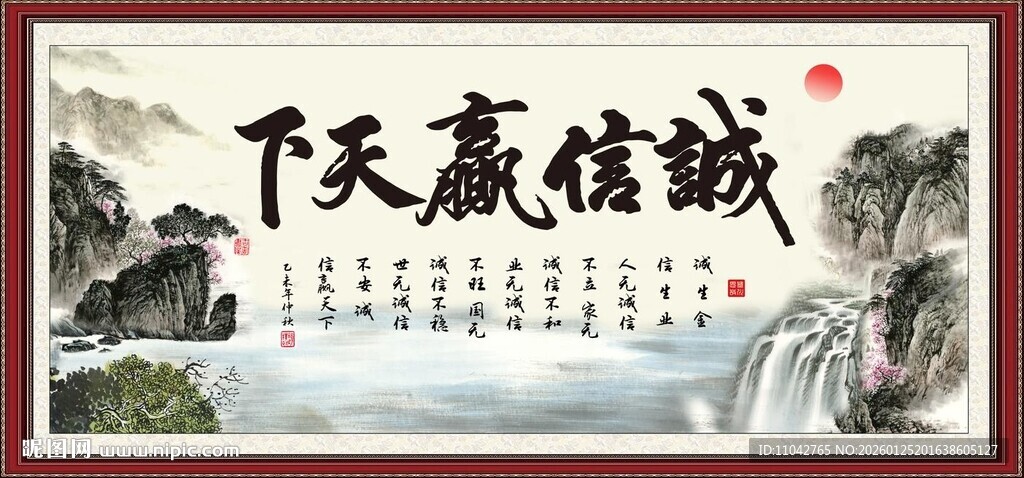 誠信贏天下
诚生金
信生业
人无诚信
不立家无
诚信不和
业无诚信
不旺国无
诚信不稳
世无诚信
不安诚
信赢天下
乙未年仲秋
昵图网 www.nipic.com
ID:11042765 NO:20260125201638605127